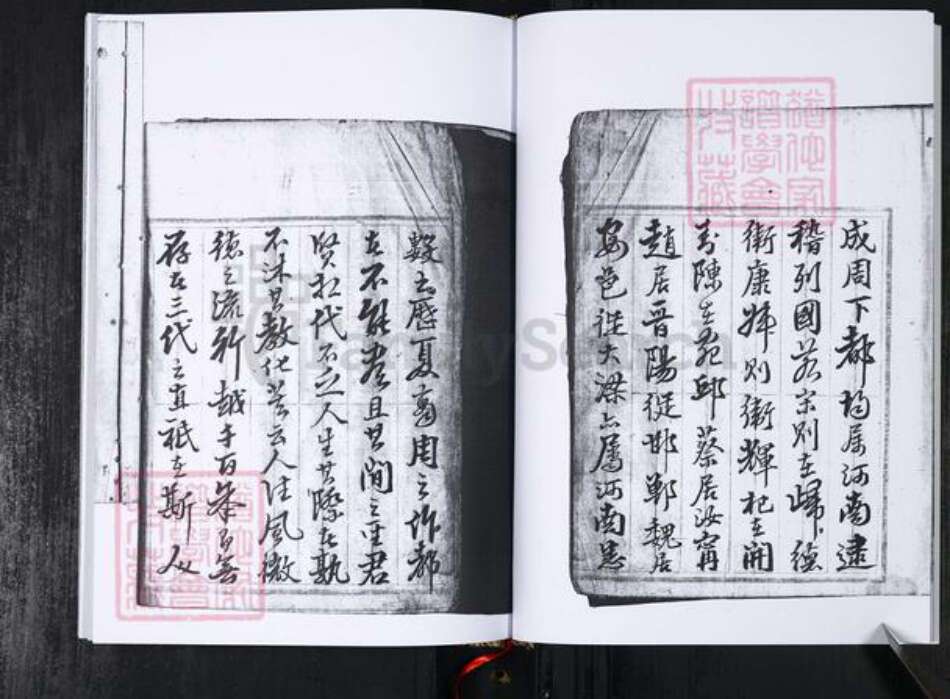 成周下都均屬河南逮
稽列國若宋則在歸德
衛康姊則衛輝杞在開
封陳在宛邱蔡居汝甯
趙居晉陽從邯鄲魏居
安邑從大梁亦屬河南
數之歷夏商周之作都
在不能盡且其間之聖君
賢相代不乏人生其際者孰
不沐其教化甚云人往風微
德之流行越千百年而無
存在三代之直祇在斯人